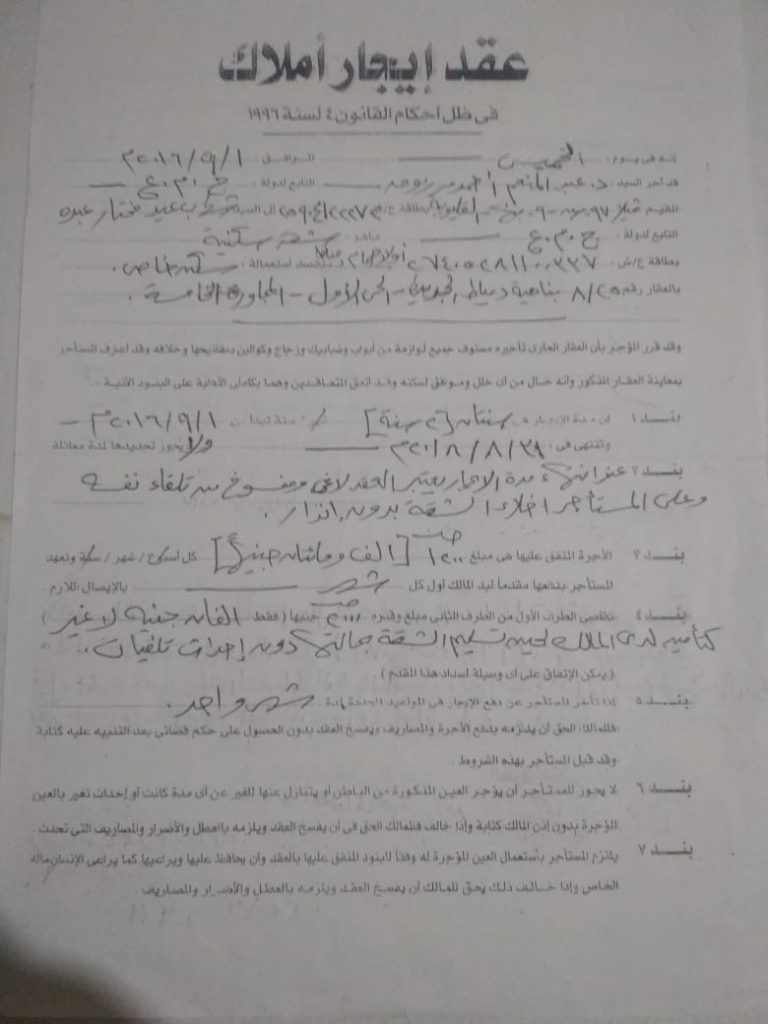 عقد إيجار أملاك
فى ظل أحكام القانون ٤ لسنة ١٩٩٦
إنه فى يوم : الخميس الموافق : ٢٠١٦/٩/١ م
قد أجر السيد : د. عبد المنعم أحمد التابع لدولة : ج.م.ع
المقيم فيلا ٩٧ بطاقة ع/ش الى السيد عيد مختار عبده
التابع لدولة : ج.م.ع ما هو : شقة سكنية
بطاقة ع/ش : ٢٧٤٠٥٢٨١١٠٠٣٣٧ بقصد استعماله : سكن خاص
بالعقار رقم ٨/٢٥ بناحية دمياط الجديدة - الحى الأول - المجاورة الخامسة .
وقد قرر المؤجر بأن العقار الجارى تأجيره مستوف جميع لوازمه من أبواب وشبابيك وزجاج وكوالين بمفاتيحها وخلافه وقد اعترف المستأجر
بمعاينة العقار المذكور وأنه خال من أى خلل وموافق لسكنه وقد اتفق المتعاقدين وهما بكامل الأهلية على البنود الآتية :
بنــد ١ أن مدة الإيجار هى سنتان [٢ سنة] / سنة تبدأ من ٢٠١٦/٩/١ م
وتنتهى فى : ٢٠١٨/٨/٣١ م ولا يجوز تجديدها لمدة مماثلة
بنــد ٢ عند انتهاء مدة الايجار يعتبر العقد لاغى ومفسوخ من تلقاء نفسه
وعلى المستأجر اخلاء الشقة بدون إنذار .
بنــد ٣ الأجرة المتفق عليها هى مبلغ ١٢٠٠ [الف ومائتان جنيهاً] كل أسبوع / شهر / سنة وتعهد
المستأجر بدفعها مقدماً ليد المالك أول كل شهر بالإيصال اللازم .
بنــد ٤ تقاضى الطرف الأول من الطرف الثانى مبلغ وقدره ٢٠٠٠ جنيها ( فقط الفان جنيه لا غير )
كتأمين لدى المالك لحين تسليم الشقة بحالتها دون إحداث تلفيات .
( يمكن الإتفاق على أى وسيلة لسداد هذا المقدم )
بنــد ٥ إذا تأخر المستأجر عن دفع الإيجار فى المواعيد المحددة لمدة : شهر واحد .
فللمالك الحق أن يلزمه بدفع الأجرة والمصاريف ويفسخ العقد بدون الحصول على حكم قضائى بعد التنبيه عليه كتابة
وقد قبل المستأجر بهذه الشروط .
بنــد ٦ لا يجوز للمستأجر أن يؤجر العين المذكورة من الباطن أو يتنازل عنها للغير عن أى مدة كانت أو إحداث تغير بالعين
المؤجرة بدون إذن المالك كتابة وإذا خالف فللمالك الحق فى أن يفسخ العقد ويلزمه بالعطل والأضرار والمصاريف التى تحدث .
بنــد ٧ يلتزم المستأجر بأستعمال العين المؤجرة له وفقاً للبنود المتفق عليها بالعقد وأن يحافظ عليها ويراعيها كما يراعى الإنسان ماله
الخاص وإذا خالف ذلك يحق للمالك أن يفسخ العقد ويلزمه بالعطل والأضرار والمصاريف .